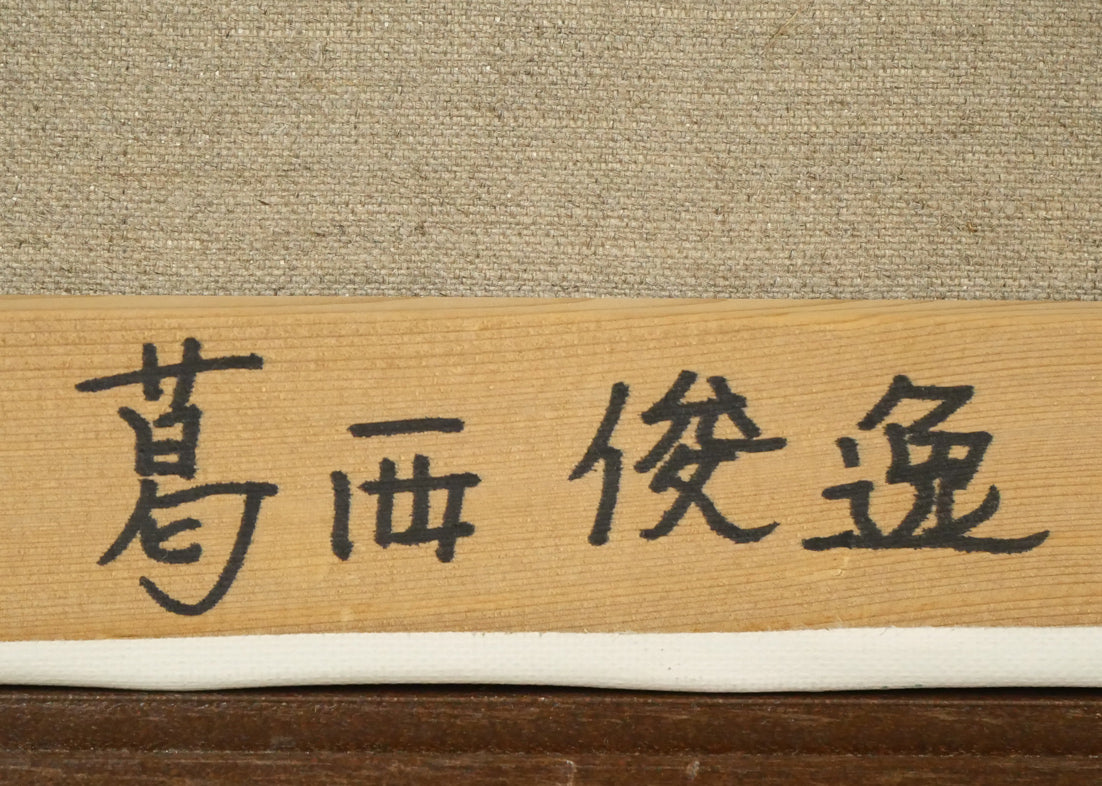 葛西俊逸